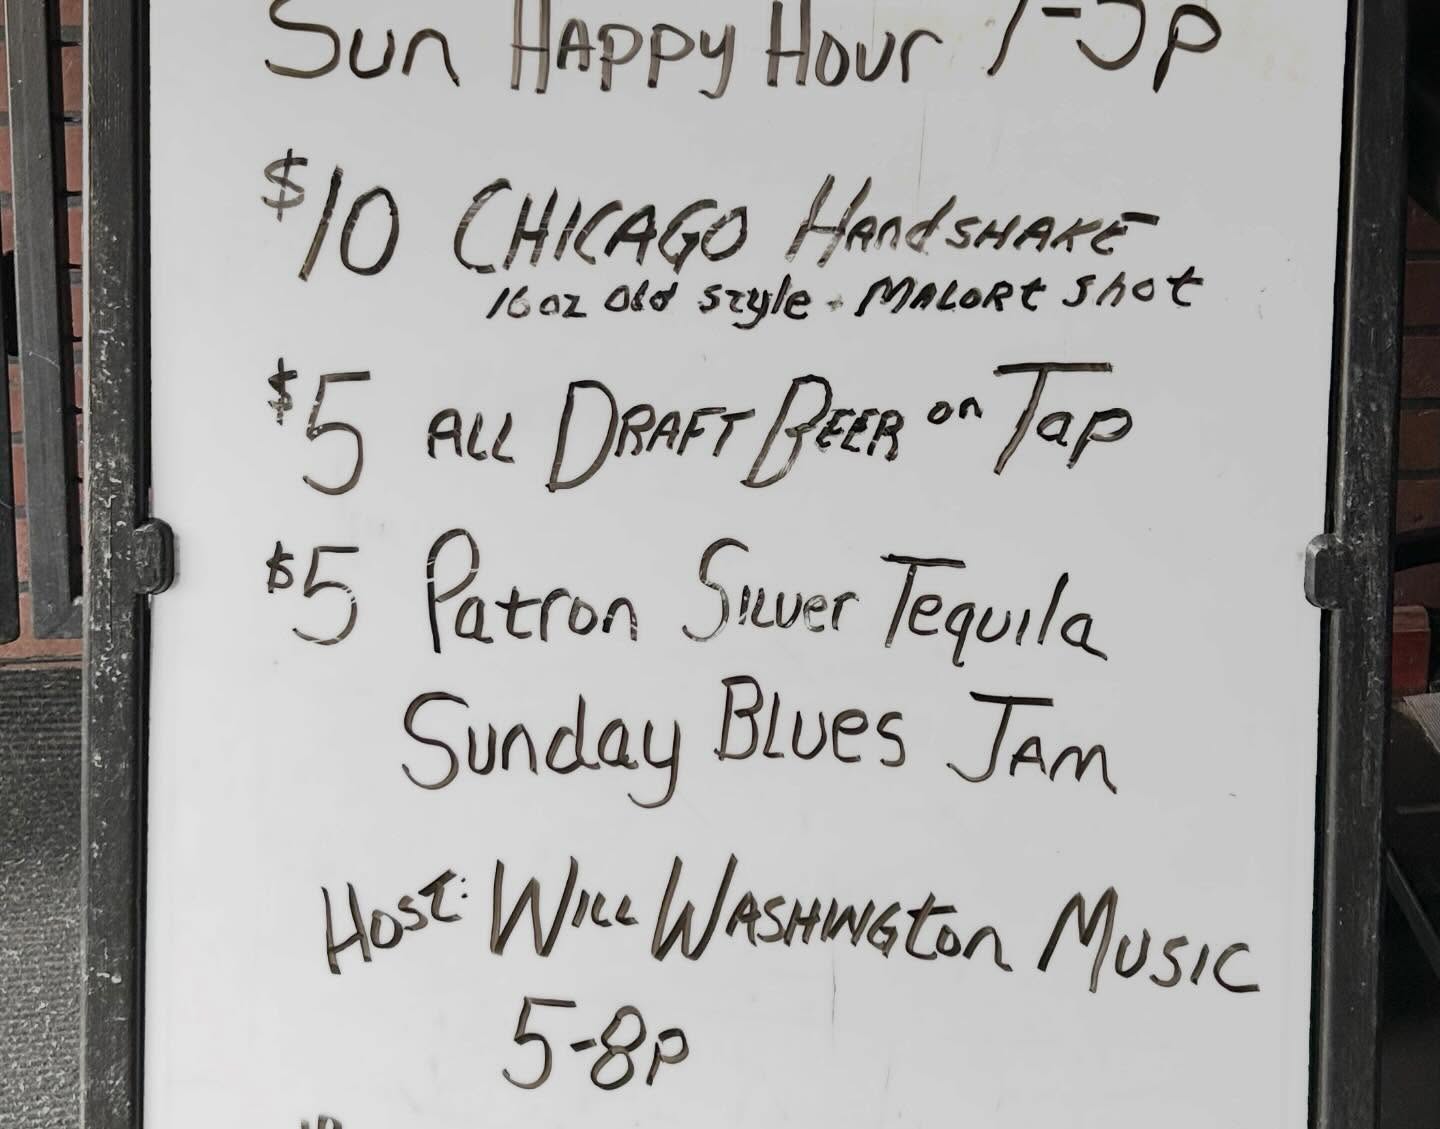 Sun HAPPY Hour 1-5p
$10 CHICAGO HandSHAKE
16oz Old Style - MALORt shot
$5 ALL DRAFT BEER on Tap
$5 Patron Silver Tequila
Sunday BLues JAM
Host: WILL WASHINGton MUSIC
5-8p